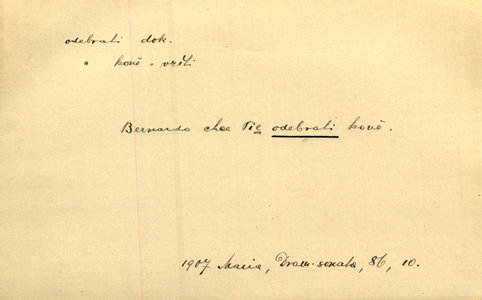 odebrati dok.
" koně = vzíti
Bernardo chce Pie odebrati koně.
1907 Maria, Dram. sonata, 86, 10.